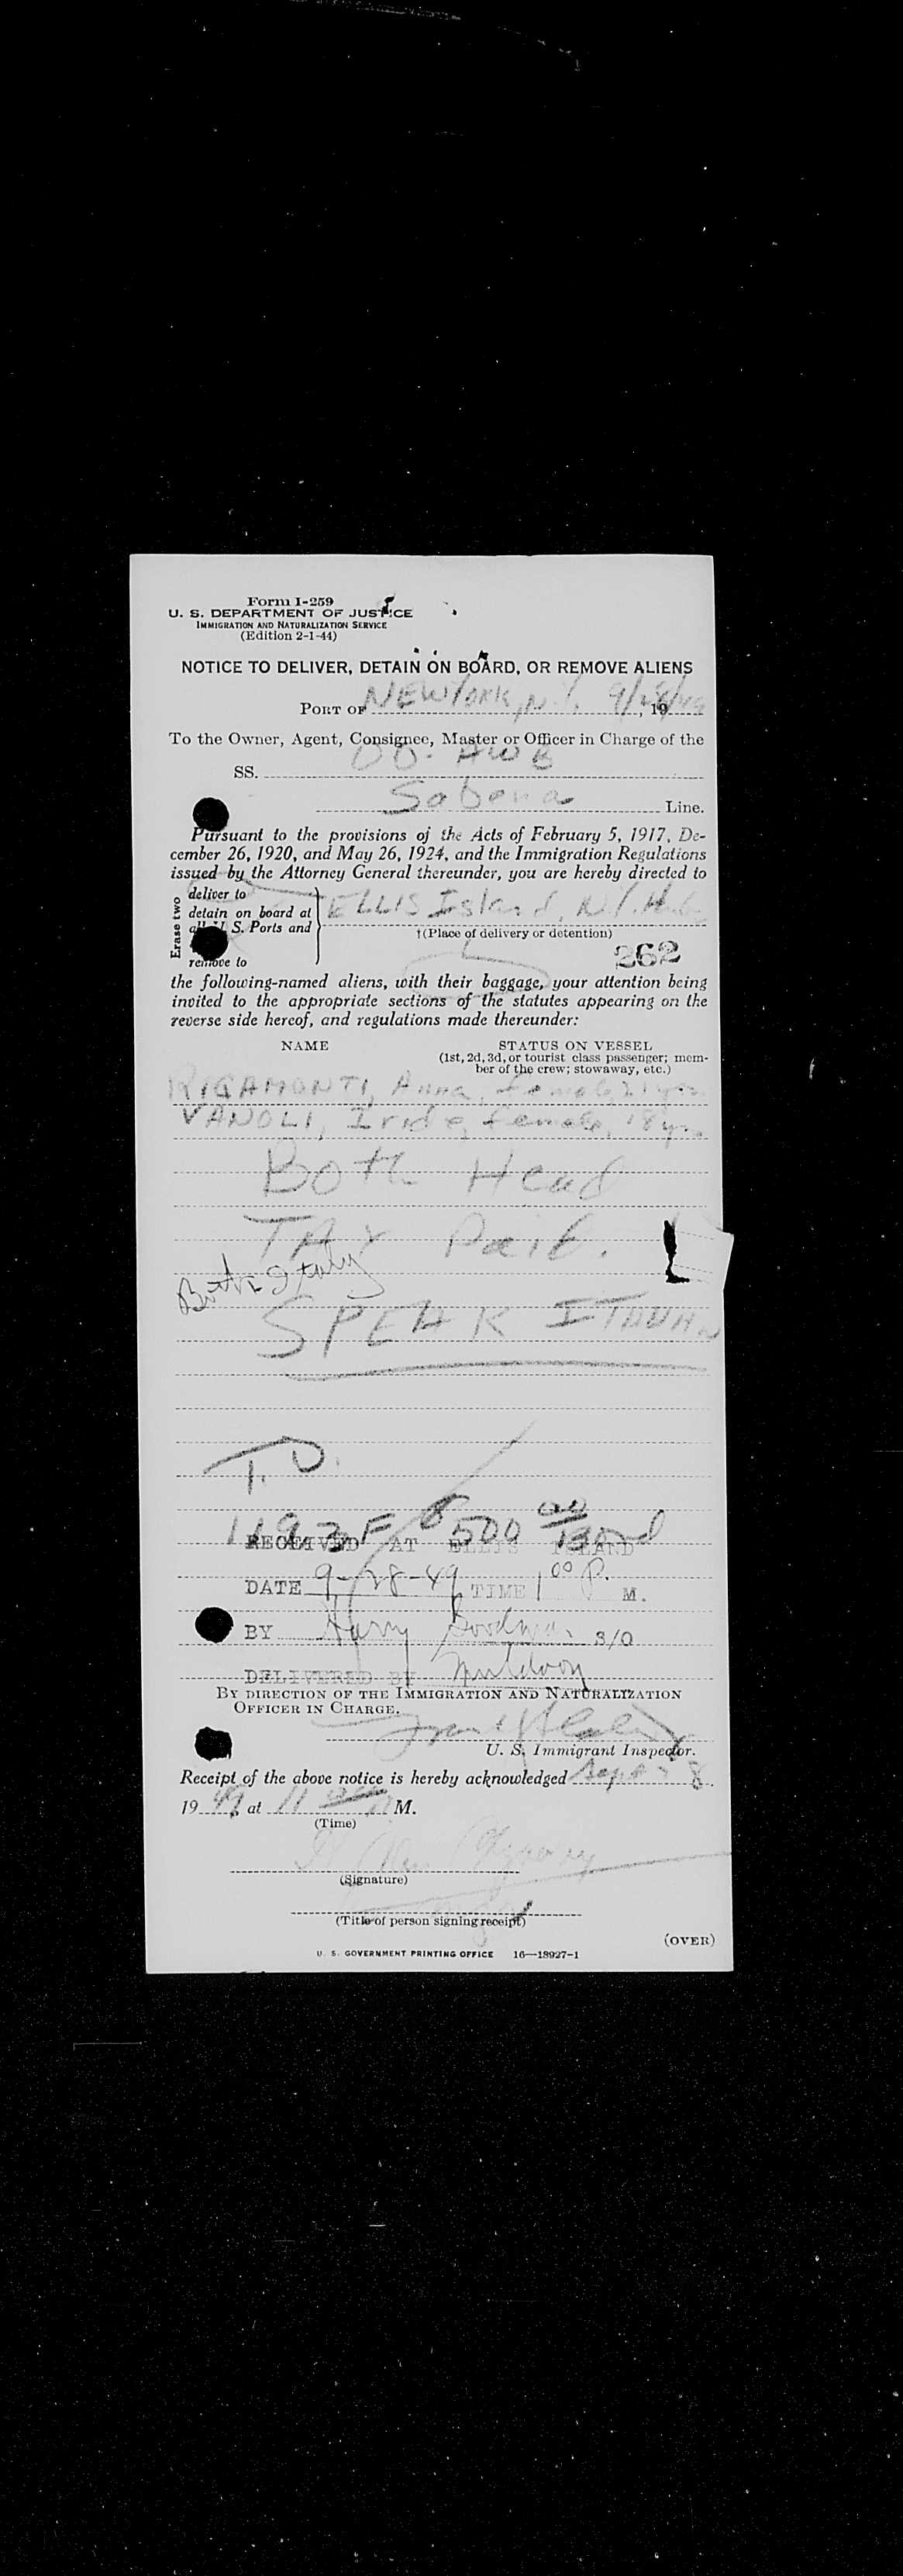 Form I-259
U. S. DEPARTMENT OF JUSTICE
IMMIGRATION AND NATURALIZATION SERVICE
(Edition 2-1-44)
NOTICE TO DELIVER, DETAIN ON BOARD, OR REMOVE ALIENS
PORT OF NEW YORK, N.Y. 9/28/49, 19
To the Owner, Agent, Consignee, Master or Officer in Charge of the
SS. OO-AWB
Sabena Line.
Pursuant to the provisions of the Acts of February 5, 1917, De-
cember 26, 1920, and May 26, 1924, and the Immigration Regulations
issued by the Attorney General thereunder, you are hereby directed to
Erase two
deliver to
detain on board at ELLIS Island, N.Y. H
all U. S. Ports and
†(Place of delivery or detention)
remove to 262
the following-named aliens, with their baggage, your attention being
invited to the appropriate sections of the statutes appearing on the
reverse side hereof, and regulations made thereunder:
NAME STATUS ON VESSEL
(1st, 2d, 3d, or tourist class passenger; mem-
ber of the crew; stowaway, etc.)
RIGAMONTI, Anna, female, 21 yrs
VANOLI, Iride, female, 18 yrs
Both Head
TAX Paid.
Both Italy
SPEAK ITALIAN
T. D.
1193F 500 00 Bond
RECEIVED AT ELLIS ISLAND
DATE 9-28-49 TIME 1 00 P. M.
BY Harry Goodman S/O
DELIVERED BY Muldoon
BY DIRECTION OF THE IMMIGRATION AND NATURALIZATION
OFFICER IN CHARGE.
U. S. Immigrant Inspector.
Receipt of the above notice is hereby acknowledged Sept 28,
19 49, at 11 M.
(Time)
(Signature)
(Title of person signing receipt)
(OVER)
U. S. GOVERNMENT PRINTING OFFICE 16—18927-1